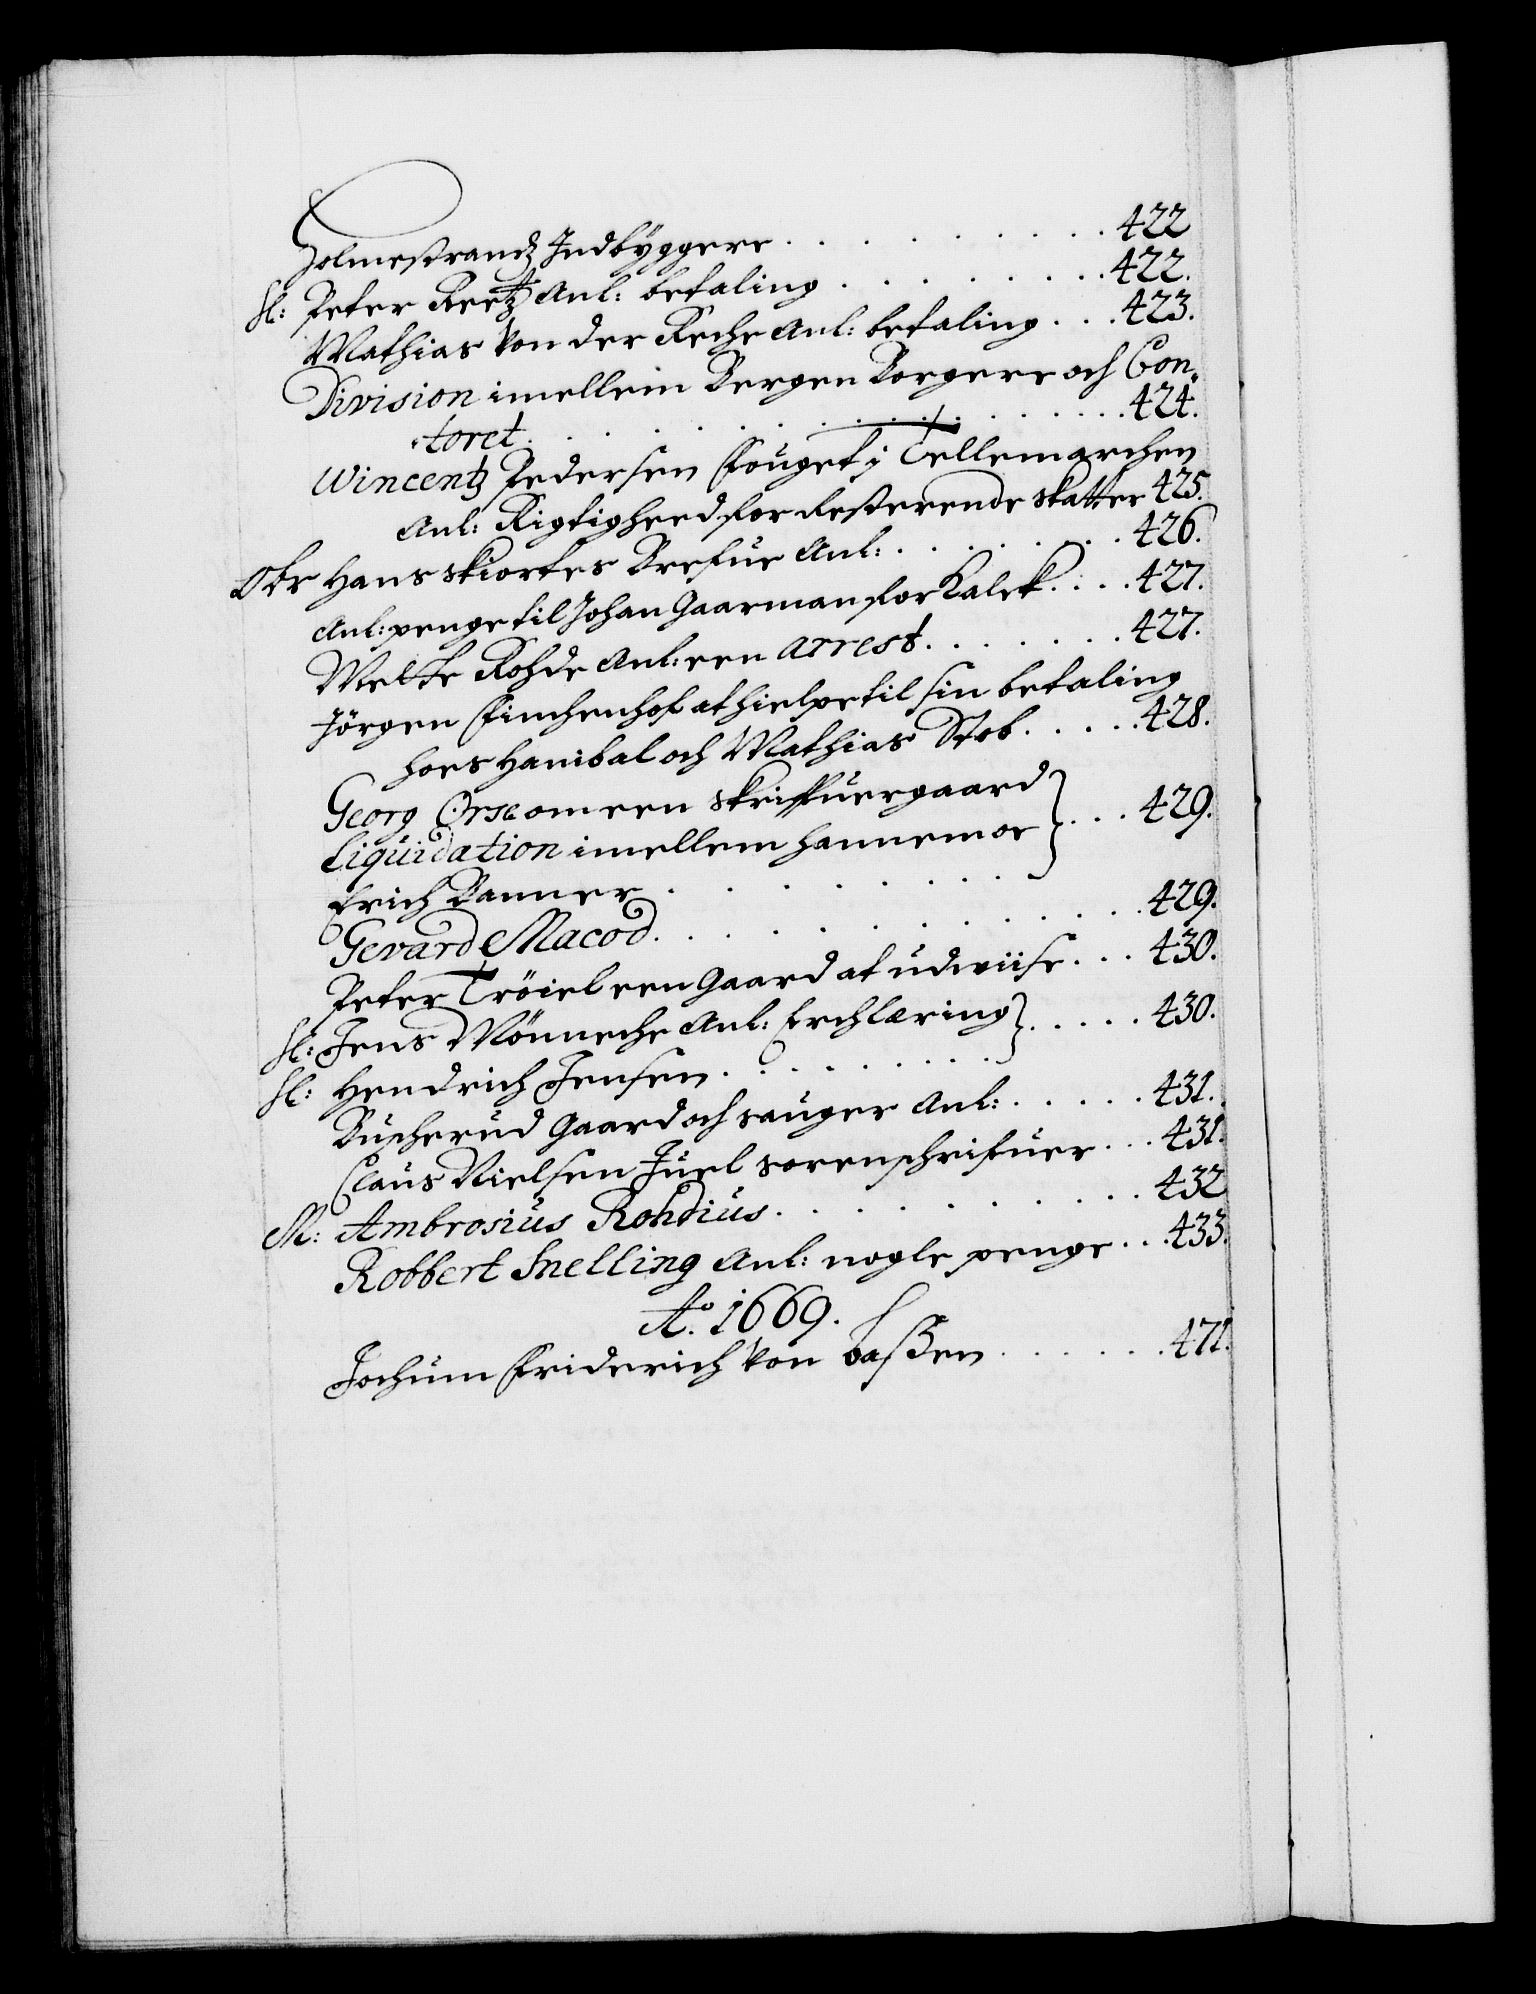 Holmestrandz Indbyggere . . . . . . . . . . 422
Sl: Peter Reetz Anl: betaling . . . . . . . . 422.
Mathias Von der Reche Anl: betaling . . . 423.
Division imellem Bergen Borgere och Con„
„toret . . . . . . . . . . . . . 424.
Wincentz Pedersen Fouget j Tellemarchen
Anl: Rigtigheed for Resterende skatter 425.
Obr Hans skiortes Brefue Anl: . . . . . . . 426.
Anl: penge til Johan Gaarman for Kalck . . . . 427.
Mette Rohde Anl: een arrest . . . . . . . 427.
Jörgen Finchenhof at hielpe til sin betaling
hoes Hanibal och Mathias Stob . . . . . 428.
Georg Orse om een skriffuergaard
Liquidation imellem hannem oc } . . . 429.
Erich Banner . . . . . . . . .
Gevard Macod . . . . . . . . . . . . 429.
Peter Tröiel een Gaard at udwiise . . . 430.
Sl: Jens Mönneche Anl: Erchlæring } . . . . . 430.
Sl: Hendrich Jensen . . . . . . . .
Buscherud Gaard och sauger Anl: . . . . . 431.
Claus Nielsen Juel sorenschrifuer . . . 431.
M: Ambrosius Rohdius . . . . . . . . . 432
Robbert Snelling Anl: nogle penge . . . 433.
Ao. 1669.
Jochum Friderich Von baßen . . . . . . 471.